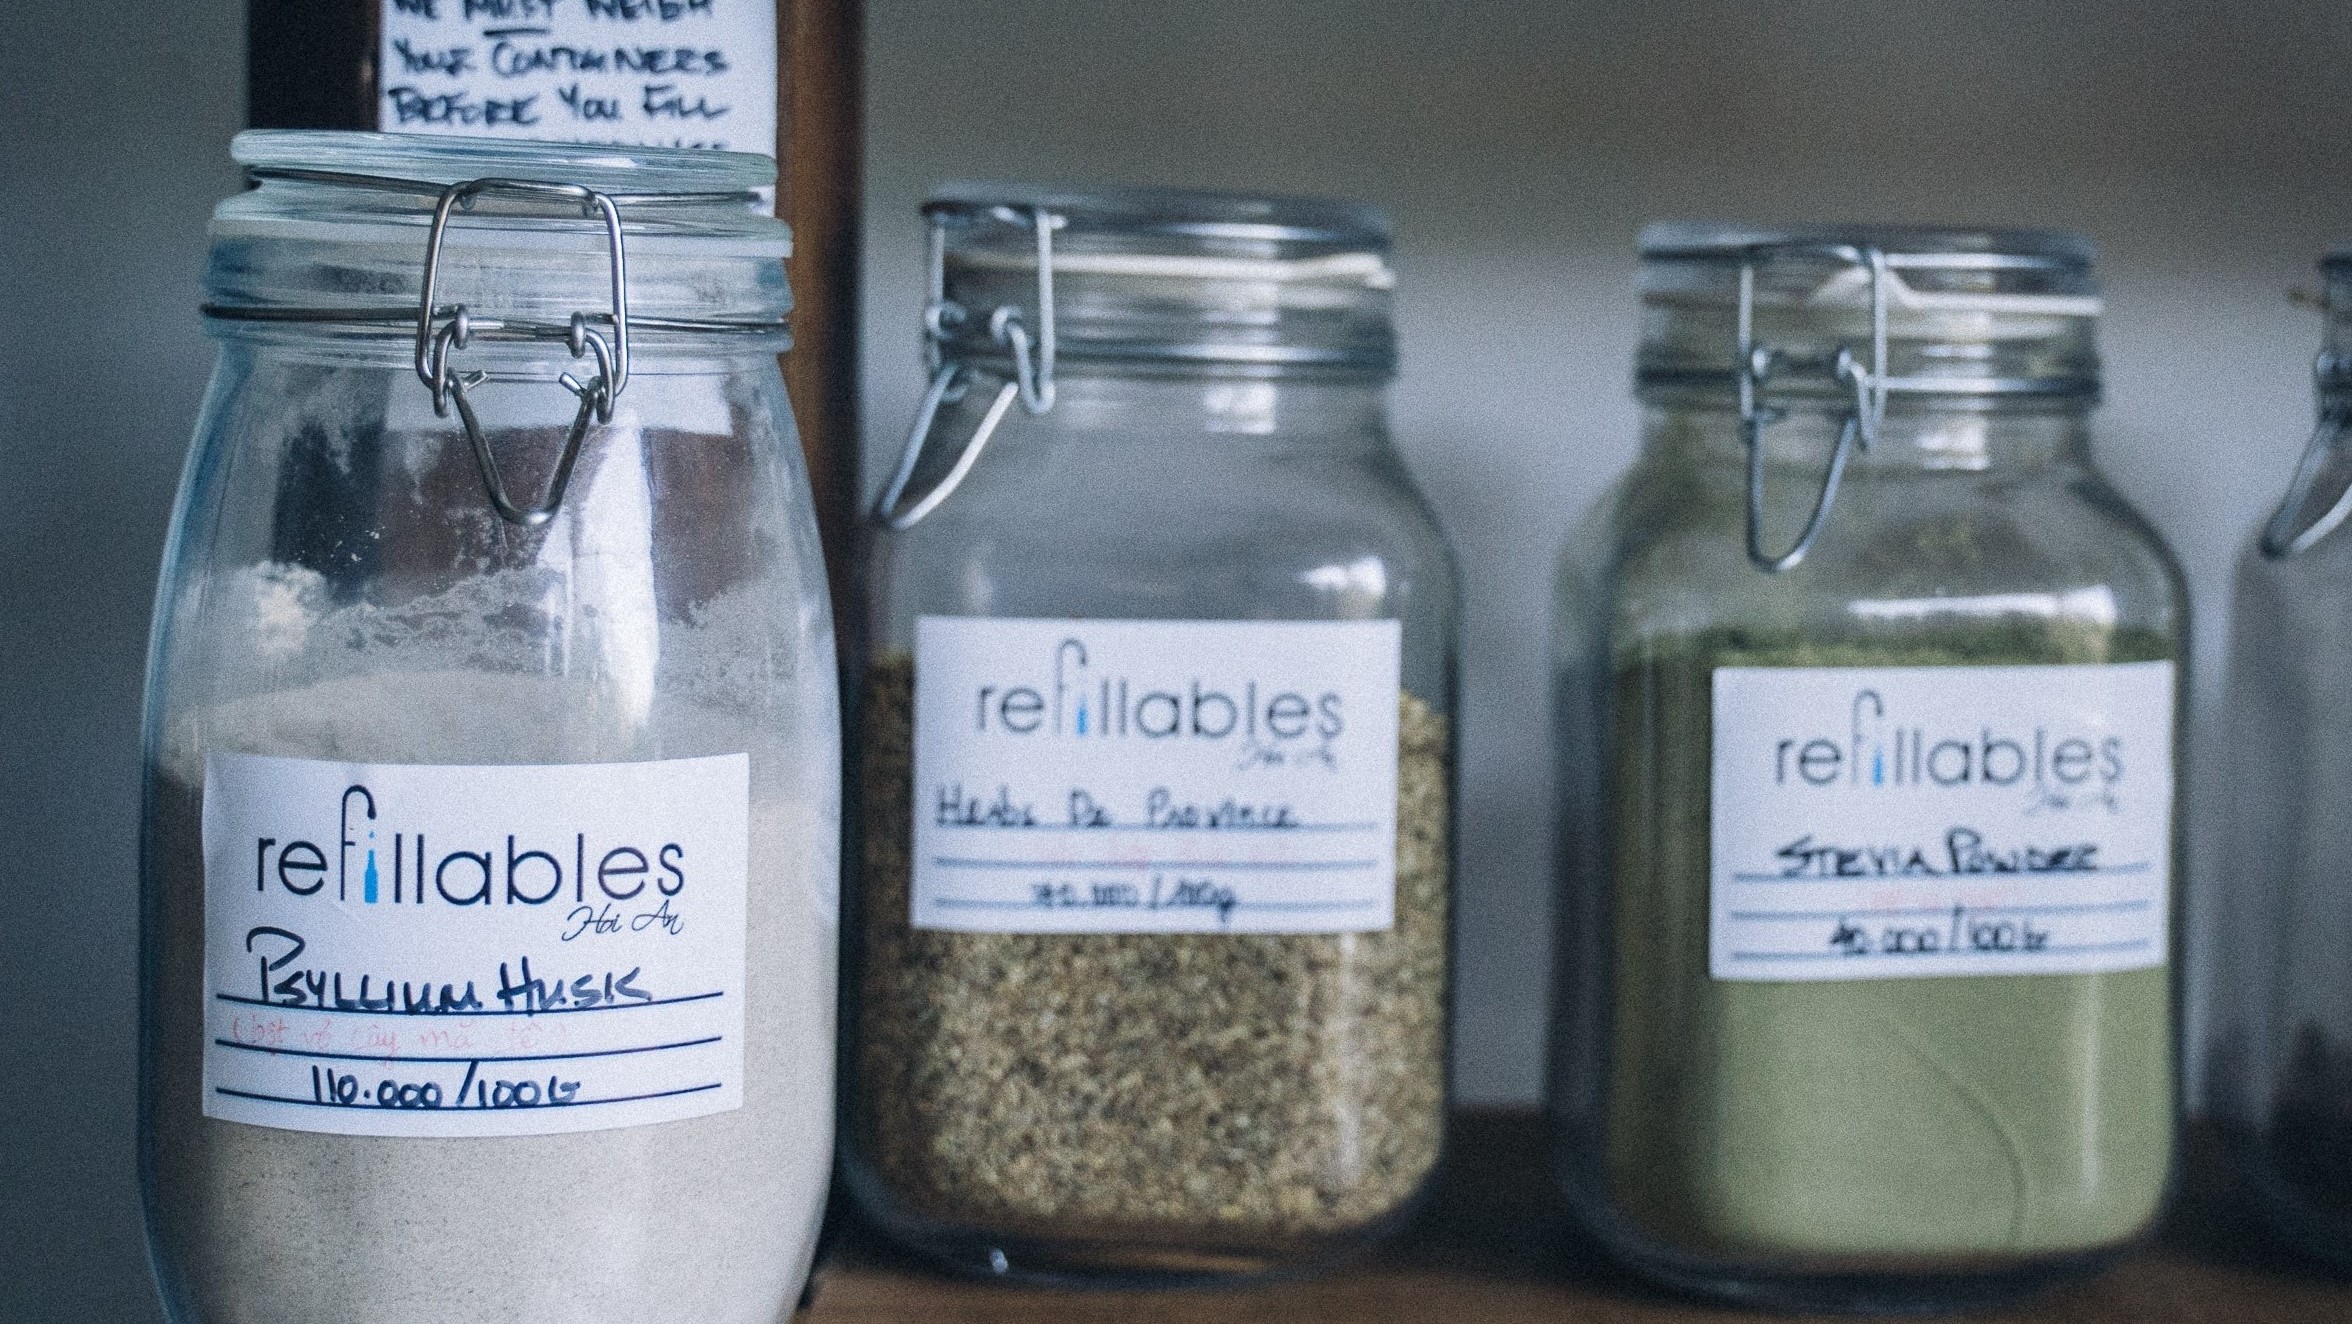 WE MUST WEIGH
YOUR CONTAINERS
BEFORE YOU FILL
refillables
Hoi An
PSYLLIUM HUSK
(bột vỏ cây mã đề)
110.000/100G
refillables
Hoi An
Herbs De Province
/100g
refillables
Hoi An
STEVIA POWDER
40.000/100G